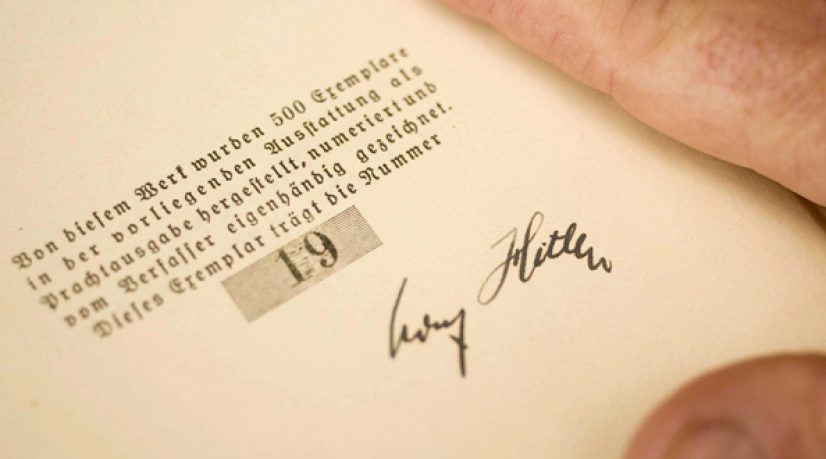 Von dieſem Werk wurden 500 Exemplare
in der vorliegenden Ausſtattung als
Prachtausgabe hergeſtellt, numeriert und
vom Verfaſſer eigenhändig gezeichnet.
Dieſes Exemplar trägt die Nummer
19
Hitler